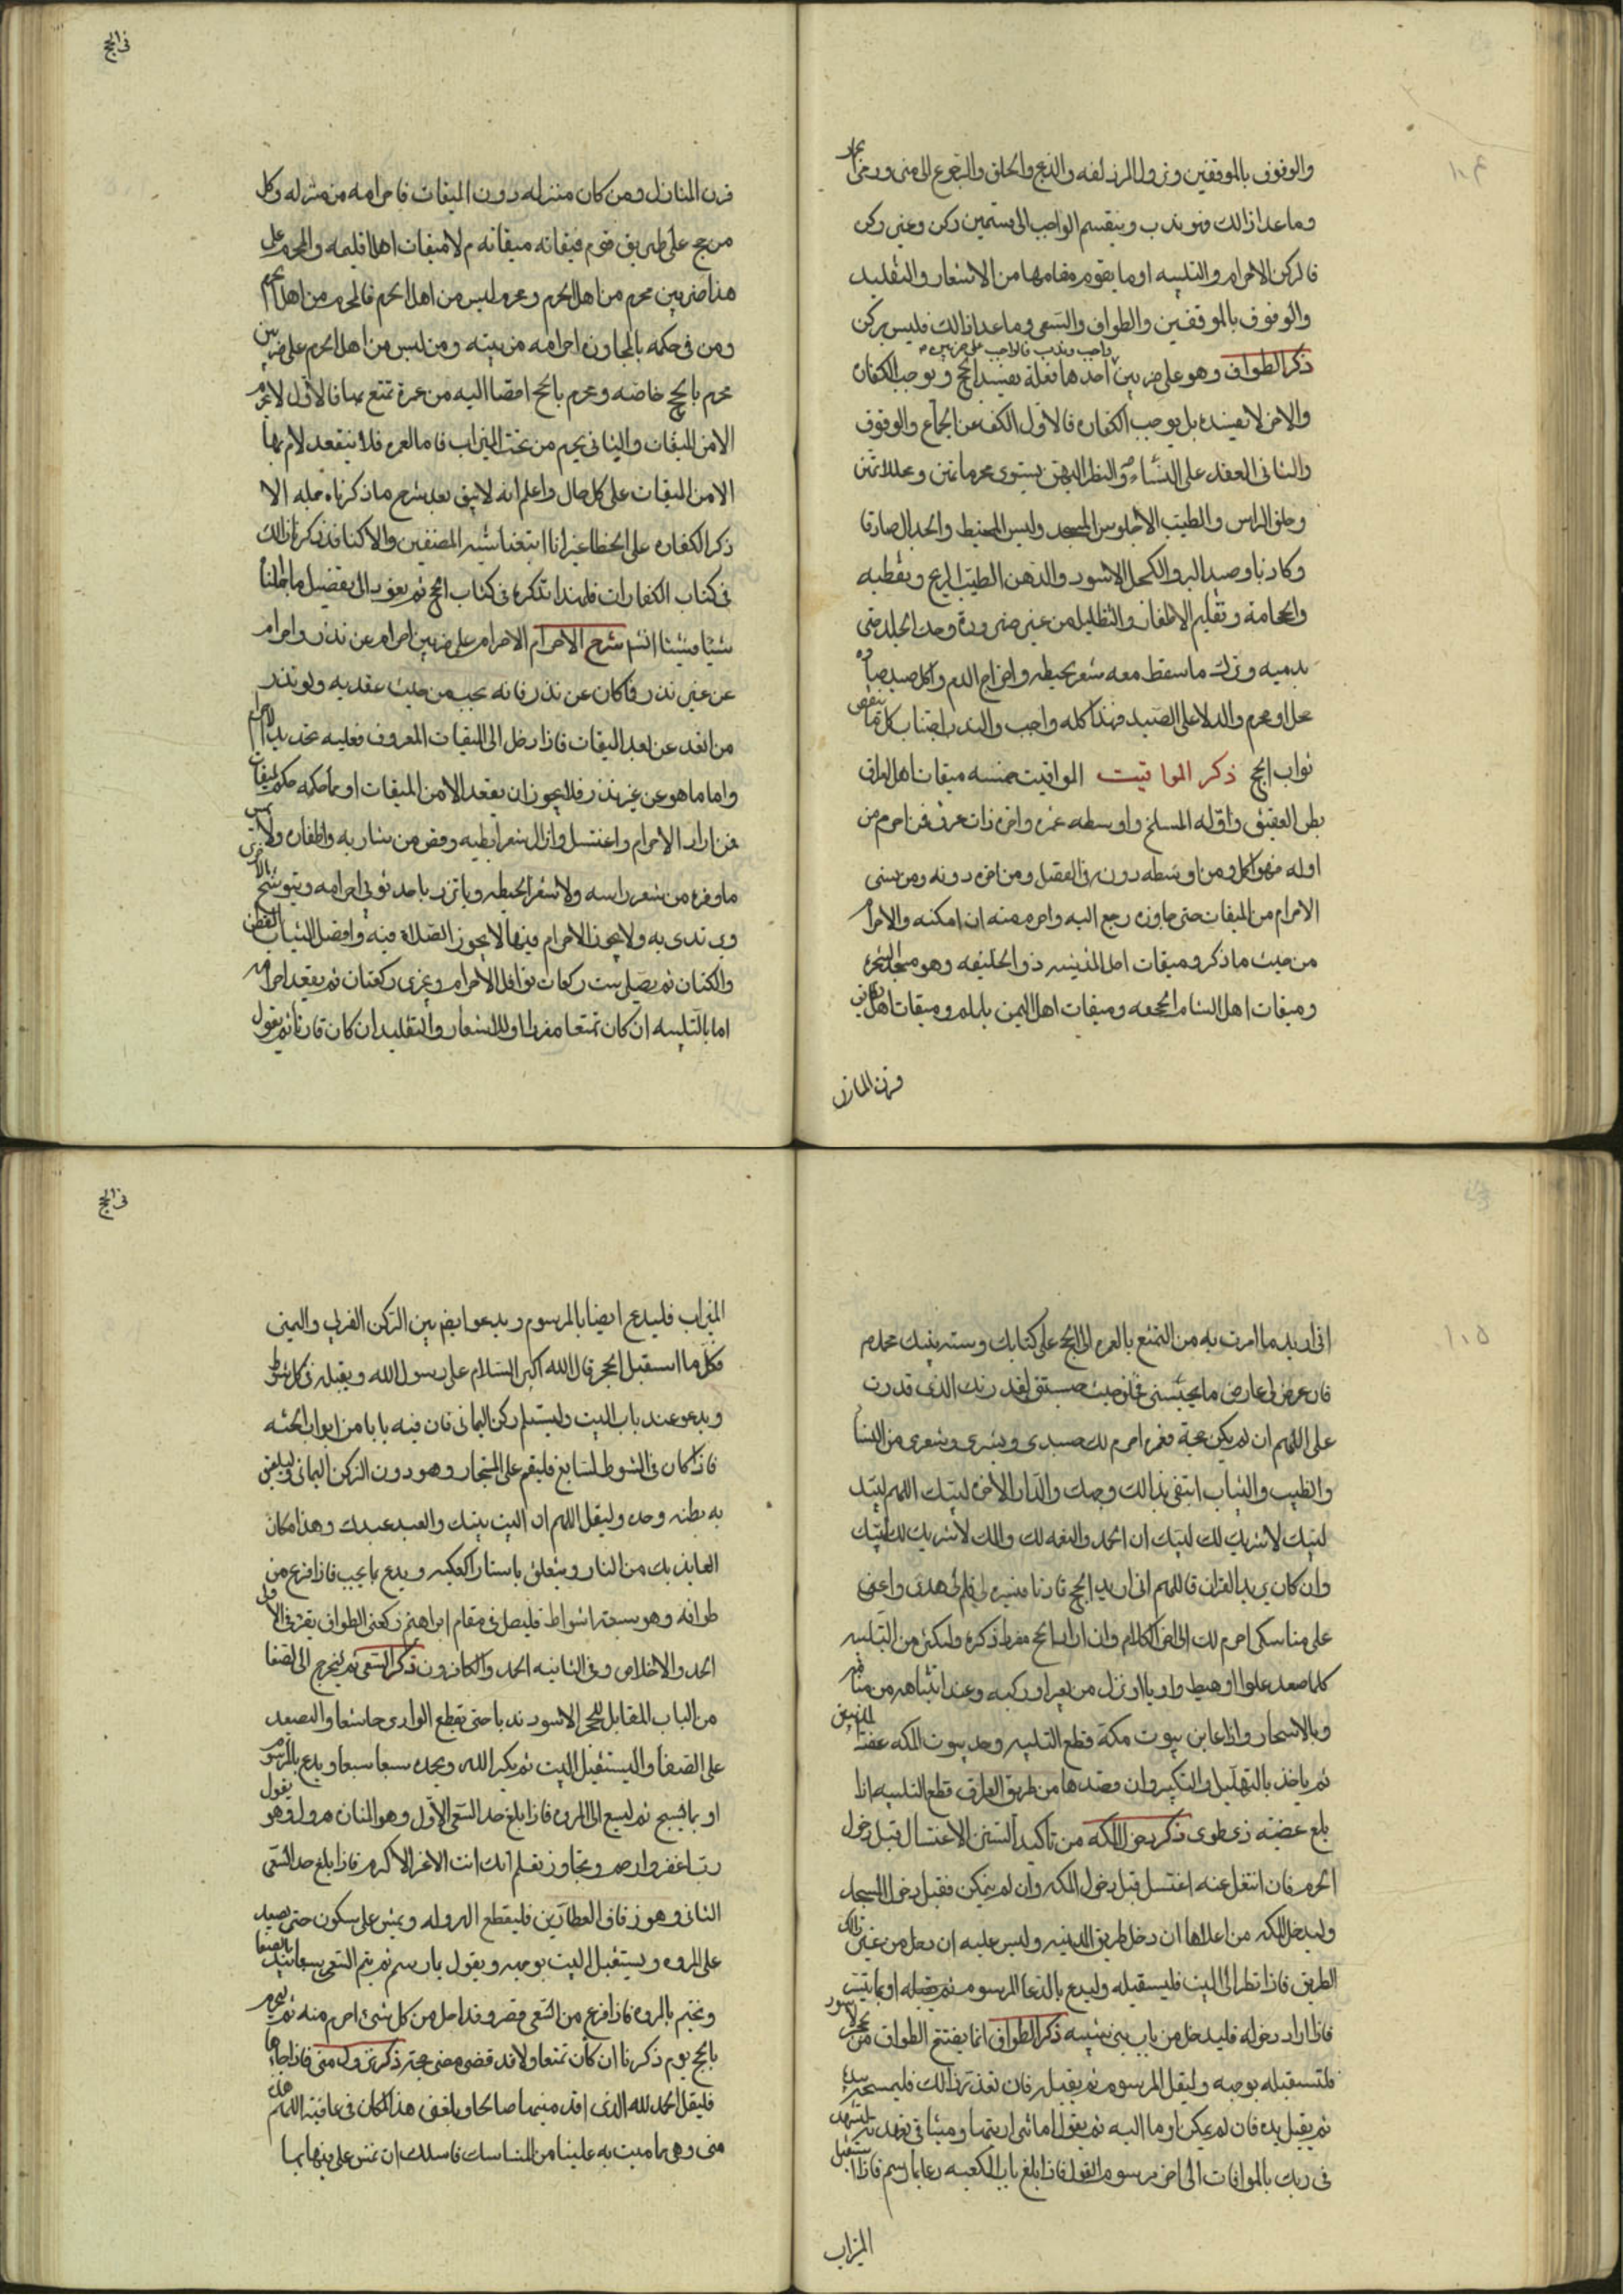 ١٠٤
والوقوف بالموقفين ونزول المزدلفه والذبح والحلق والرجوع الى منى ورمى الجمار
وما عدا ذالك فندب وينقسم الواجب الى قسمين ركن وغير ركن
فالركن الاحرام والتلبيه او ما يقوم مقامها من الاشعار والتقليد
والوقوف بالموقفين والطواف والسعى وما عدا ذالك فليس بركن
ذكر الطواف وهو على ضربين واجب وندب فالواجب على ضربين احدهما فعله يفسد الحج ويوجب الكفاره
والاخر لا يفسده بل يوجب الكفاره فالاول الكف عن الجماع والوقوف
والثانى العقد على النساء والنظر اليهن بشهوى محرماتهن ومحللاتهن
وحلق الراس والطيب الا خلوس المسجد ولبس المخيط والجدال صادقا
وكاذبا وصيد البر والكحل الاسود والدهن الطيب الريح وتغطيه
والحجامة وتقليم الاظفار والتظليل من غير ضروره وحك الجلد حتى
يدميه وترك ما سقط معه شعر يحيطه واخراج الدم واكل صيد صاده
محل او محرم والدلاله على الصيد فهذا كله واجب والندب اجتناب كلما ينقص
ثواب الحج ذكر المواقيت المواقيت خمسه ميقات اهل العراق
بطن العقيق واوله المسلخ واوسطه غمره واخره ذات عرق فمن احرم من
اوله فهو اكل ومن اوسطه دونه فى الفضل ومن اخره دونه ومن نسى
الاحرام من الميقات حتى جاوزه رجع اليه واحرم منه ان امكنه والاحرام
من حيث ما ذكر وميقات اهل المدينه ذو الحليفه وهو مسجد الشجره
وميقات اهل الشام الجحفه وميقات اهل اليمن يلملم وميقات اهل الطائف
قرن المنازل
فى الحج
قرن المنازل ومن كان منزله دون الميقات فاحرامه من منزله وكل
من حج على طريق قوم فميقاته ميقاتهم لا ميقات اهل اقليمه والمحرم على
هذا ضربين محرم من اهل الحرم ومحرم ليس من اهل الحرم فالمحرم من اهل الحرم
ومن فى حكمه بالمجاوره احرامه من بيته ومن ليس من اهل الحرم على ضربين
محرم بالحج خاصه ومحرم بالحج افضا اليه من عمرة تمتع بها فالاول لا يحرم
الا من الميقات والثانى يحرم من تحت الميزاب فاما العمره فلا ينعقد لاحرام بها
الا من الميقات على كل حال واعلم انه لا يبق بعد شرح ما ذكرناه جمله الا
ذكر الكفاره على الخطا غير انا اتبعنا سير المصنفين والا كنا قد ذكرنا ذالك
فى كتاب الكفارات فلهذا نذكره فى كتاب الحج ثم نعود الى تفضيل ما جملناه
شيئا فشيئا انشا شرح الاحرام الاحرام على ضربين احرام عن نذر واحرام
عن غير نذر فما كان عن نذر فانه يجب من حيث عقد به ولو نذر
من ابعد عن بعد الميقات فاذا دخل الى الميقات المعروف فعليه تجديد الاحرام
واما ما هو عن غير نذر فلا يجوز ان يعقد الا من الميقات او ما حكمه حكم الميقات
فمن اراد الاحرام واغتسل وازال شعر ابطيه وقص من شاربه واظفاره ولا يمس
ما وفره من شعر راسه ولا شعر لحيطه ويأتزر باحد ثوبى احرامه ويتوشح بالاخرى
ويرتدى به ولا يجوز الاحرام فيها لا يجوز الصلاة فيه وافضل الثياب القطن
والكتان ثم يصلى ست ركعات نوافل الاحرام ويجزى ركعتان ثم يعقد احرامه
اما بالتلبيه ان كان متمتعا مفردا او بالاشعار والتقليد ان كان قارنا ثم يقول
١٠٥
انى اريد ما امرت به من التمتع بالعمره الى الحج على كتابك وسنه نبيك محمد ص
فان عرض لى عارض ما يحبسنى فحلنى حيث حبستنى لقدرتك الذى قدرت
على اللهم ان لم يكن حجة فعمره احرم لك جسدى وبشرى وشعرى من النساء
والطيب والثياب ابتغى بذالك وجهك والدار الاخره لبيك اللهم لبيك
لبيك لا شريك لك لبيك ان الحمد والنعمه لك والملك لا شريك لك لبيك
وان كان يريد القران قال اللهم انى اريد الحج قارنا فيسره لى وسلم لى هدى واعنى
على مناسكى احرم لك الى اخر الكلام وان اراد الحج مفردا ذكره وليكثر من التلبيه
كلما صعد علوا او هبط واديا او نزل من بعير او ركبه وعند انتباهه من منامه
وبالاسحار واذا عاين بيوت مكة قطع التلبيه وحد بيوت المكه عقبة المدنيين
ثم ياخذ بالتهليل والتكبير وان قصدها من طريق العراق قطع التلبيه اذا
بلغ عقبة ذى طوى ذكر دخول المكه من تاكيد السنن الاغتسال قبل دخول
الحرم فان انتغل عنه اغتسل قبل دخول المكه وان لم يتمكن فقبل دخول المسجد
وليدخل المكه من اعلاها ان دخل طريق المدينه وليس عليه ان دخل من غير ذالك
الطريق فاذا نظر الى البيت فليستقبله وليدع بالدعا المرسوم ثم يقبله او بما تيسر
فاذا اراد دخوله فليدخل من باب بنى شيبه ذكر الطواف انما يفتتح الطواف من حجر الاسود
فلتستقبله بوجهه وليقل المرسوم ثم يقبله فان تعذر ذالك فليمسحه بيده
ثم يقبل يده فان لم يمكن اوما اليه ثم يقول امانتى اديتها وميثاقى تعهدته لتشهد
فى ربك بالموافات الى اخر مرسوم القول فاذا بلغ باب الكعبه دعا بما رسم فاذا استقبل
الميزاب
فى الحج
الميزاب فليدع ايضا بالمرسوم ويدعوا ايضا بين الركن الغربى واليمنى
فكل ما استقبل الحجر قال الله اكبر السلام على رسول الله ويقبله فى كل شوط
ويدعو عند باب البيت وليستلم ركن اليمانى فان فيه بابا من ابواب الجنه
فاذا كان فى الشوط السابع فليقم على المستجار وهو دون الركن اليمانى وليلصق
به بطنه وخده وليقل اللهم ان البيت بيتك والعبد عبدك وهذا مكان
العايذ بك من النار ويتعلق باستار الكعبه ويدع بما يحب فاذا فرغ من
طوافه وهو سبعة اشواط فليصل فى مقام ابراهيم ركعتى الطواف يقرء فى الاولى
الحمد والاخلاص وفى الثانيه الحمد والكافرون ذكر السعى ثم ليخرج الى الصفا
من الباب المقابل للحجر الاسود ندبا حتى يقطع الوادى خاشعا وليصعد
على الصفا وليستقبل البيت ثم يكبر الله ويحمده سبعا سبعا ويدع بالمرسوم
او بما يسبح ثم ليسع الى المروه فاذا بلغ حد السعى الاول وهو المناره هرول وهو يقول
رب اغفر وارحم وتجاوز عما تعلم انك انت الاعز الاكرم فاذا بلغ حد السعى
الثانى وهو زقاق العطارين فليقطع الهروله ويمش على سكون حتى يصعد
على المروه ويستقبل البيت بوجهه ويقول ما رسم ثم يتم السعى سبعا يبتدء بالصفا
ويختم بالمروه فاذا فرغ من السعى قصر وقد احل من كل شئ احرم منه ثم يحرم
بالحج يوم ذكرنا ان كان متمتعا ولا قد قضى مضى حجته ذكر نزول منى فاذا جاءها
فليقل الحمد لله الذى اقدمنيها صالحا وبلغنى هذا المكان فى عافية اللهم هذه
منى وهى مما منيت به علينا من المناسك فاسلك ان تمن على فيها بما